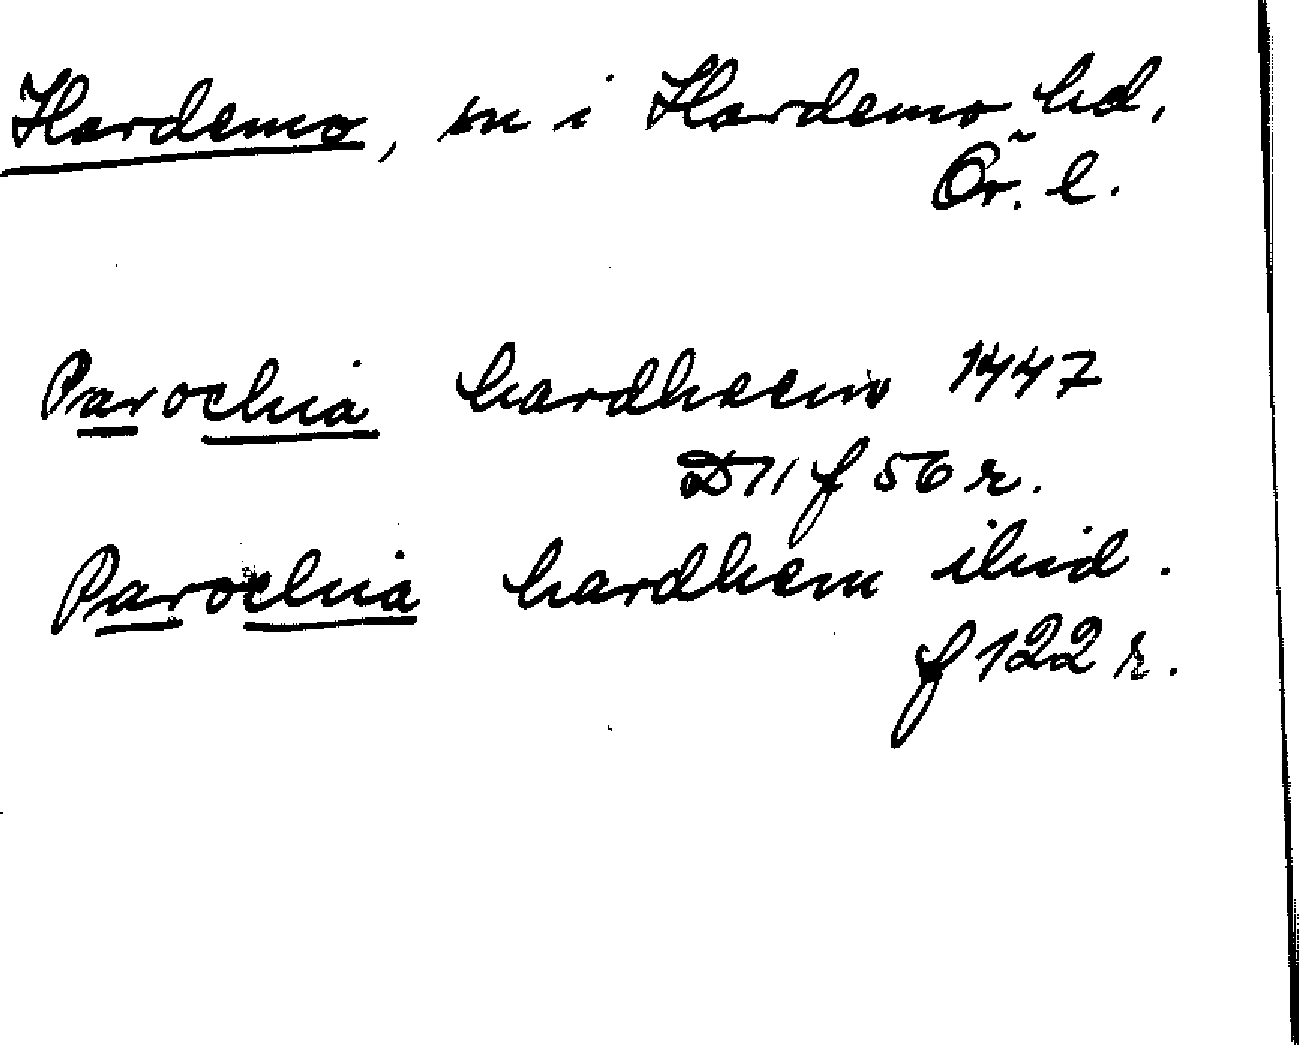 Hardemo, sn i Hardemo hd,
Ör. l.
Parochia hardheem 1447
D 11 f 56 r.
Parochia hardhem ibid.
f 122 r.